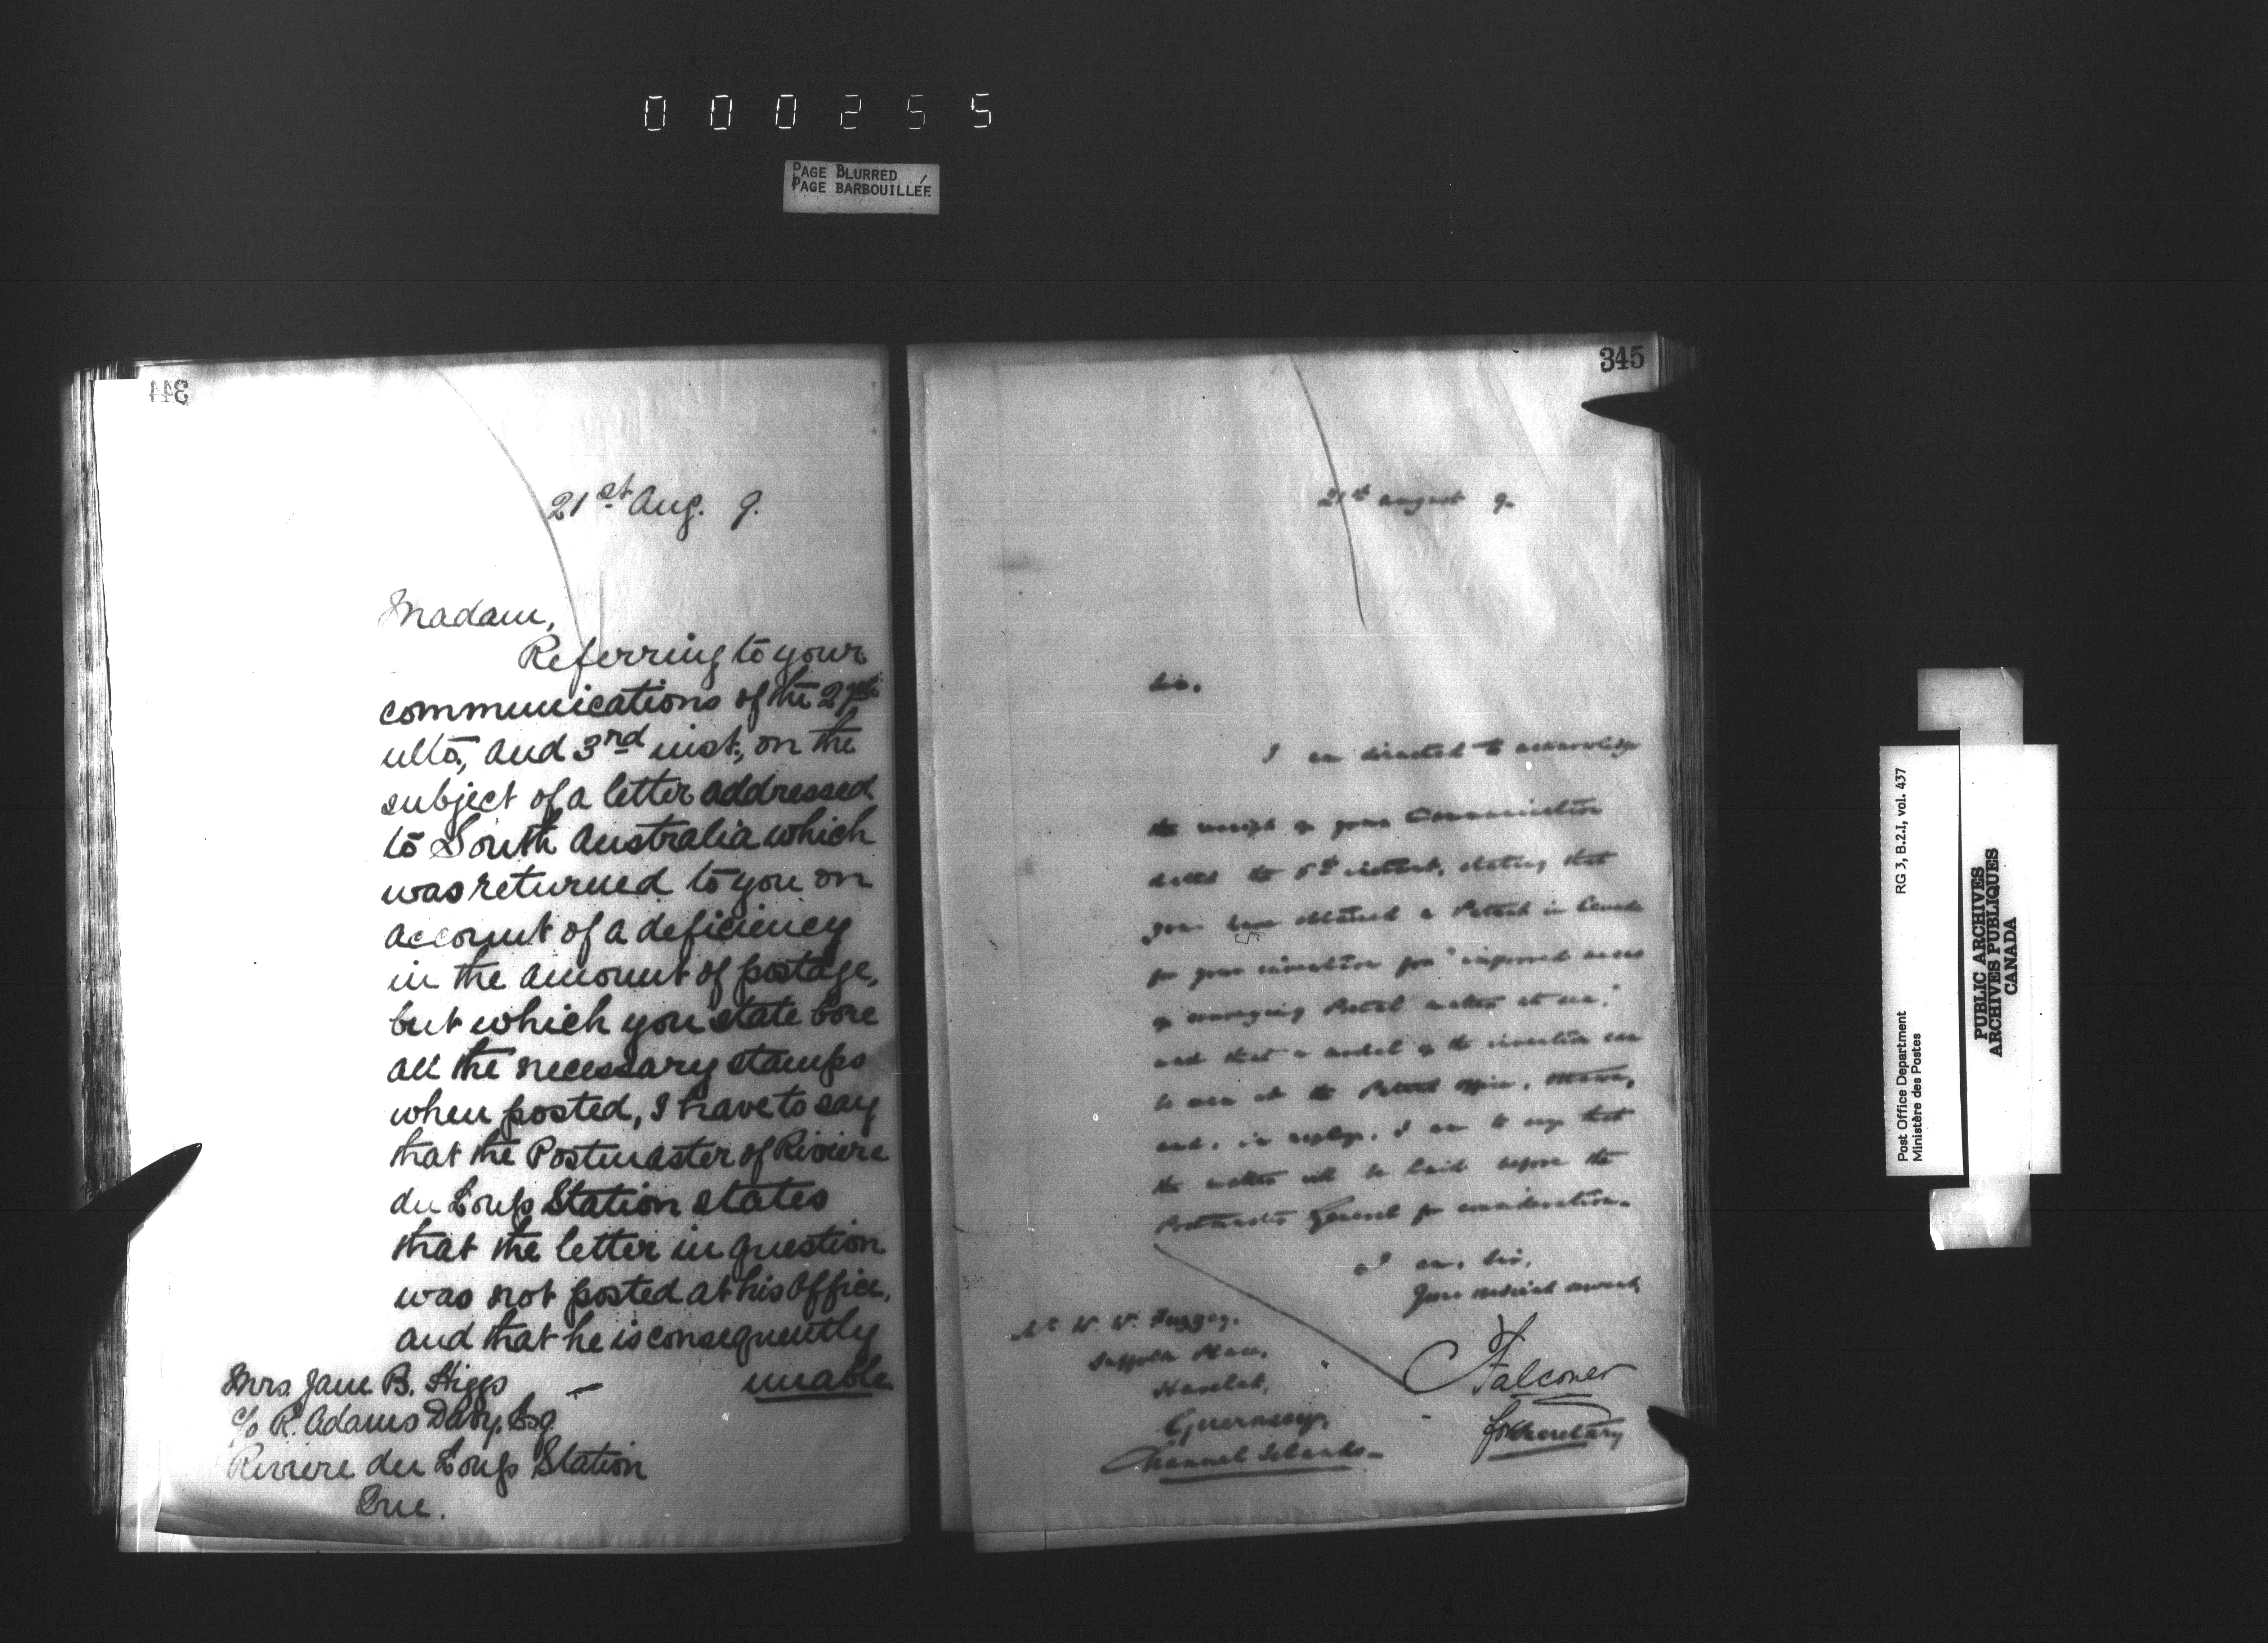 000255
PAGE BLURRED
PAGE BARBOUILLÉE
344
21st Aug. 9.
Madam,
Referring to your
communications of the 29th
ulto, and 3rd inst., on the
subject of a letter addressed
to South Australia which
was returned to you on
account of a deficiency
in the amount of postage,
but which you state bore
all the necessary stamps
when posted, I have to say
that the Postmaster of Riviere
du Loup Station states
that the letter in question
was not posted at his office,
and that he is consequently
unable
Mrs. Jane B. Higgs
c/o R. Adams Davy, Esq
Riviere du Loup Station
Que.
345
21st August 9.
Sir,
I am directed to acknowledge
the receipt of your Communication
dated the 5th instant, stating that
you have obtained a Patent in Canada
for your invention for "improved means
of conveying Postal matter at sea,"
and that a model of the invention can
be seen at the Patent Office, Ottawa,
and, in reply, I am to say that
the matter will be laid before the
Postmaster General for consideration.
I am, Sir,
Your obedient servant,
Mr. W. W.
Suffolk Place,
Havelet,
Guernsey,
Channel Islands
Falconer
for Secretary
Post Office Department RG 3, B.2.I, vol. 437
Ministère des Postes
PUBLIC ARCHIVES
ARCHIVES PUBLIQUES
CANADA